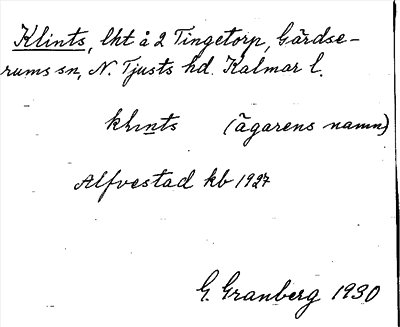 Klints, lht å 2 Tingetorp, Gärdse-
rums sn, N. Tjusts hd. Kalmar l.
klınts (ägarens namn)
Alfvestad kb 1927
G. Granberg 1930